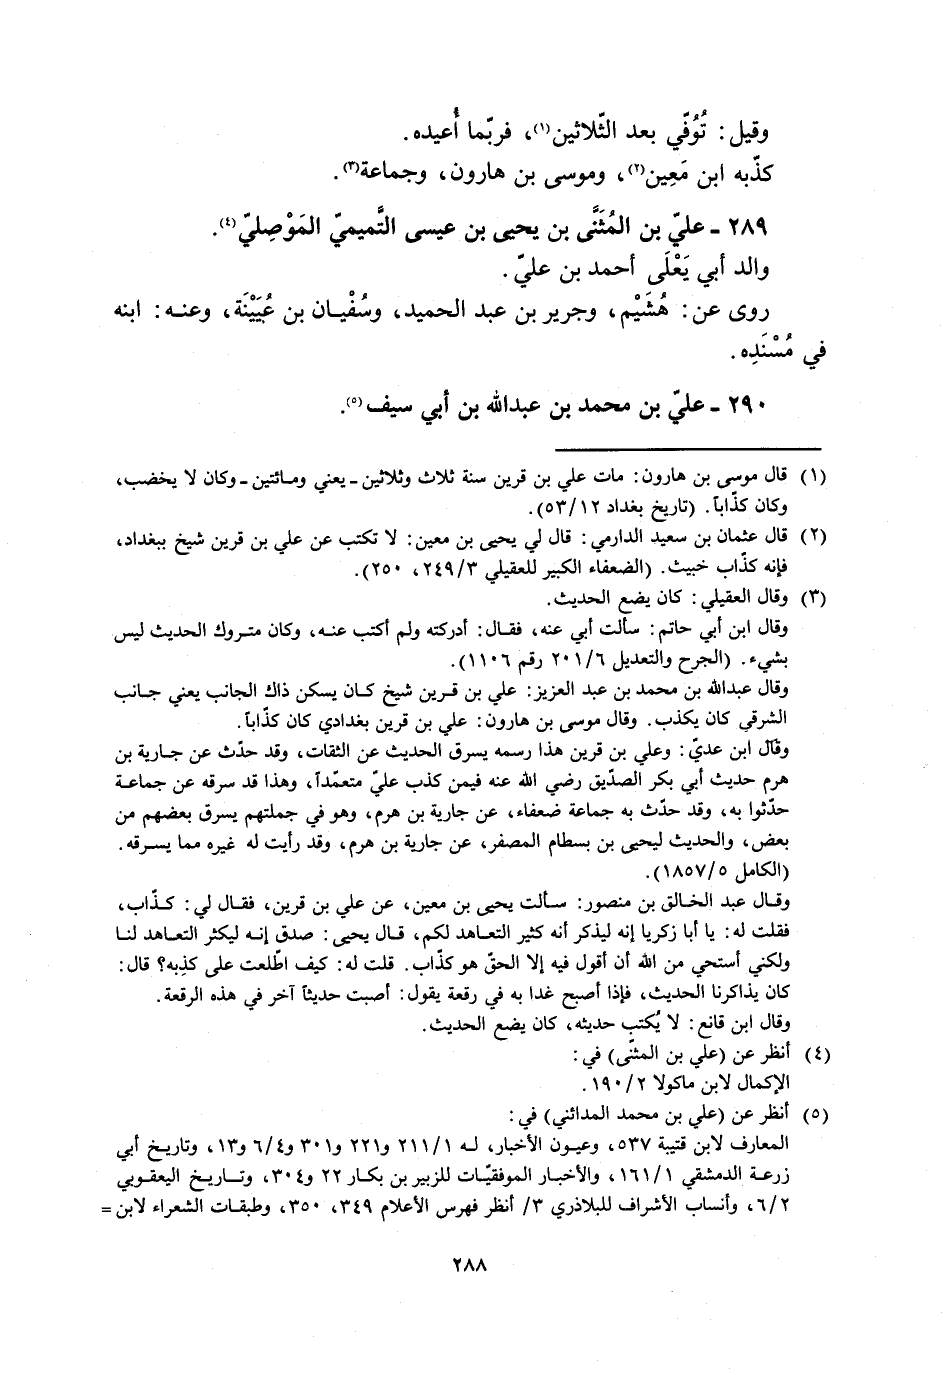 وقيل: تُوُفّي بعد الثّلاثين(١)، فربّما أُعيده.
كذّبه ابن مَعِين(٢)، وموسى بن هارون، وجماعة(٣).
٢٨٩ ـ عليّ بن المُثَنَّى بن يحيى بن عيسى التَّميميّ المَوْصِليّ(٤).
والد أبي يَعْلَى أحمد بن عليّ.
روى عن: هُشَيْم، وجرير بن عبد الحميد، وسُفْيان بن عُيَيْنَة، وعنه: ابنه
في مُسْنَدِه.
٢٩٠ ـ عليّ بن محمد بن عبدالله بن أبي سيف(٥).
(١) قال موسى بن هارون: مات علي بن قرين سنة ثلاث وثلاثين ـ يعني ومائتين ـ وكان لا يخضب،
وكان كذّاباً. (تاريخ بغداد ٥٣/١٢).
(٢) قال عثمان بن سعيد الدارمي: قال لي يحيى بن معين: لا تكتب عن علي بن قرين شيخ ببغداد،
فإنه كذّاب خبيث. (الضعفاء الكبير للعقيلي ٢٤٩/٣، ٢٥٠).
(٣) وقال العقيلي: كان يضع الحديث.
وقال ابن أبي حاتم: سألت أبي عنه، فقال: أدركته ولم أكتب عنه، وكان متروك الحديث ليس
بشيء. (الجرح والتعديل ٢٠١/٦ رقم ١١٠٦).
وقال عبدالله بن محمد بن عبد العزيز: علي بن قرين شيخ كان يسكن ذاك الجانب يعني جانب
الشرقي كان يكذب. وقال موسى بن هارون: علي بن قرين بغدادي كان كذّاباً.
وقال ابن عديّ: وعلي بن قرين هذا رسمه يسرق الحديث عن الثقات، وقد حدّث عن جارية بن
هرم حديث أبي بكر الصدّيق رضي الله عنه فيمن كذب عليّ متعمّداً، وهذا قد سرقه عن جماعة
حدّثوا به، وقد حدّث به جماعة ضعفاء، عن جارية بن هرم، وهو في جملتهم يسرق بعضهم من
بعض، والحديث ليحيى بن بسطام المصفر، عن جارية بن هرم، وقد رأيت له غيره مما يسرقه.
(الكامل ١٨٥٧/٥).
وقال عبد الخالق بن منصور: سألت يحيى بن معين، عن علي بن قرين، فقال لي: كذّاب،
فقلت له: يا أبا زكريا إنه ليذكر أنه كثير التعاهد لكم، قال يحيى: صدق إنه ليكثر التعاهد لنا
ولكني أستحي من الله أن أقول فيه إلا الحقّ هو كذّاب. قلت له: كيف اطّلعت على كذِبه؟ قال:
كان يذاكرنا الحديث، فإذا أصبح غدا به في رقعة يقول: أصبت حديثاً آخر في هذه الرقعة.
وقال ابن قانع: لا يُكتب حديثه، كان يضع الحديث.
(٤) أنظر عن (علي بن المثنّى) في:
الإكمال لابن ماكولا ١٩٠/٢.
(٥) أنظر عن (علي بن محمد المدائني) في:
المعارف لابن قتيبة ٥٣٧، وعيون الأخبار، له ٢١١/١ و٢٢١ و٣٠١ و٦/٤ و١٣، وتاريخ أبي
زرعة الدمشقي ١٦١/١، والأخبار الموفقيّات للزبير بن بكار ٢٢ و٣٠٤، وتاريخ اليعقوبي
٦/٢، وأنساب الأشراف للبلاذري ٣/ أنظر فهرس الأعلام ٣٤٩، ٣٥٠، وطبقات الشعراء لابن =
٢٨٨